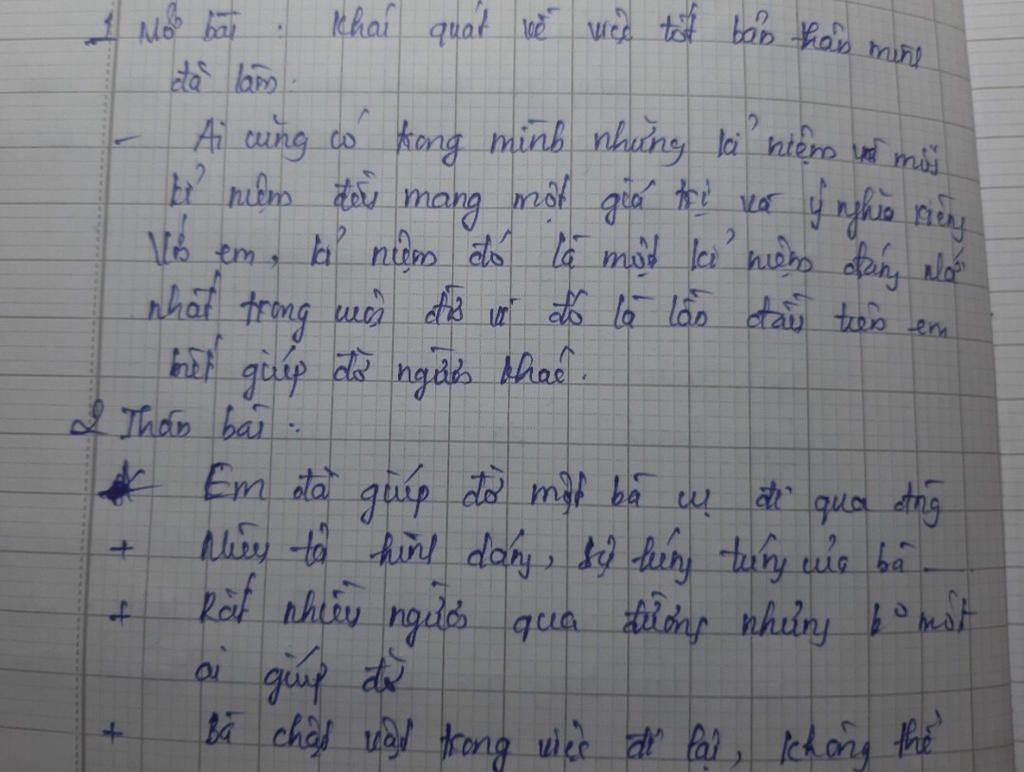 1 Mở bài : Khái quát về việc tốt bản thân mình
đã làm.
- Ai cũng có trong mình những kỉ niệm và mỗi
kỉ niệm đều mang một giá trị và ý nghĩa riêng
Với em, kỉ niệm đó là một kỉ niệm đáng nhớ
nhất trong cuộc đời vì đó là lần đầu tiên em
biết giúp đỡ người khác.
2 Thân bài :
* Em đã giúp đỡ một bà cụ đi qua đng
+ Miêu tả hình dáng, sự lúng túng của bà
+ Rất nhiều người qua đường nhưng ko một
ai giúp đỡ
+ Bà chật vật trong việc đi lại, không thể